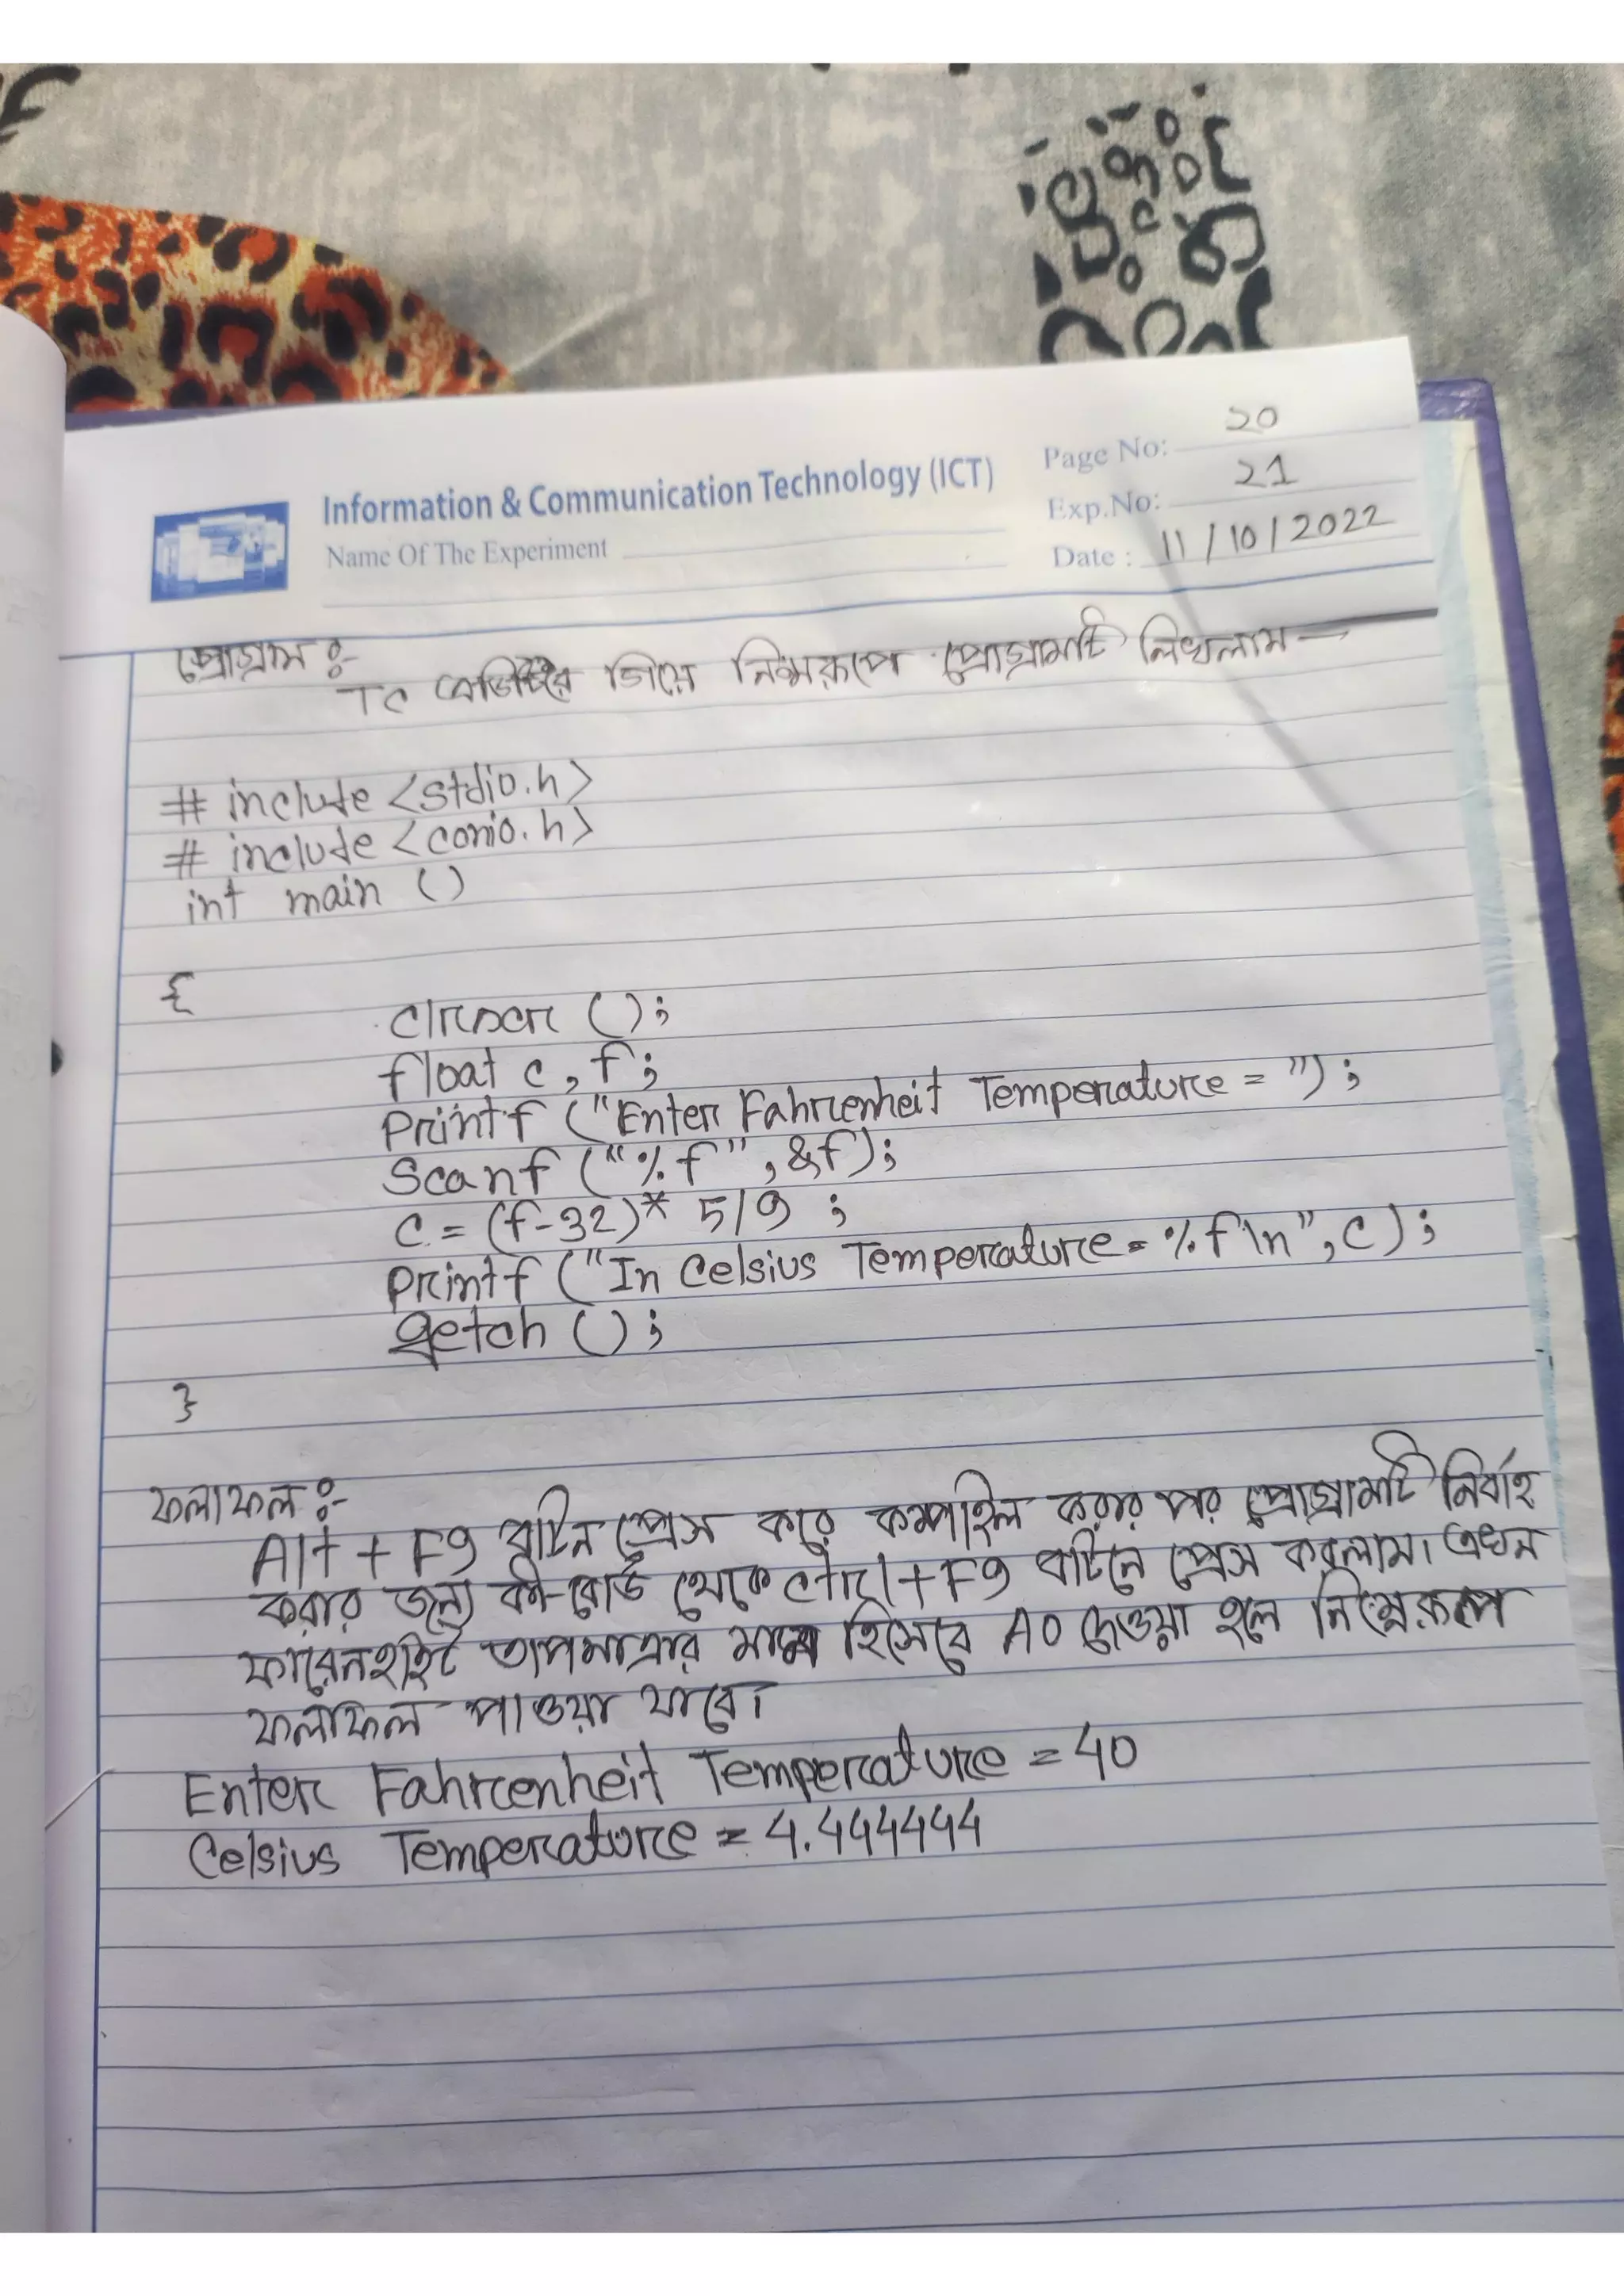 Information & Communication Technology (ICT)
Name Of The Experiment
Page No: 20
Exp.No: 21
Date : 11/10/2022
প্রোগ্রাম ঃ-
TC এডিটরে গিয়ে নিম্নরূপে প্রোগ্রামটি লিখলাম —
# include <stdio.h>
# include <conio.h>
int main ()
{
clrscr ();
float c, f;
Printf ("Enter Fahrenheit Temperature = ");
Scanf ("%f", &f);
C = (f-32)* 5/9 ;
Printf ("In Celsius Temperature = %f\n", c);
getch ();
}
ফলাফল ঃ-
Alt + F9 বাটন প্রেস করে কম্পাইল করার পর প্রোগ্রামটি নির্বাহ
করার জন্য কী-বোর্ড থেকে ctrl+F9 বাটনে প্রেস করলাম। এখন
ফারেনহাইট তাপমাত্রার মান হিসেবে 40 দেওয়া হলে নিম্নরূপ
ফলাফল পাওয়া যাবে।
Enter Fahrenheit Temperature = 40
Celsius Temperature = 4.444444